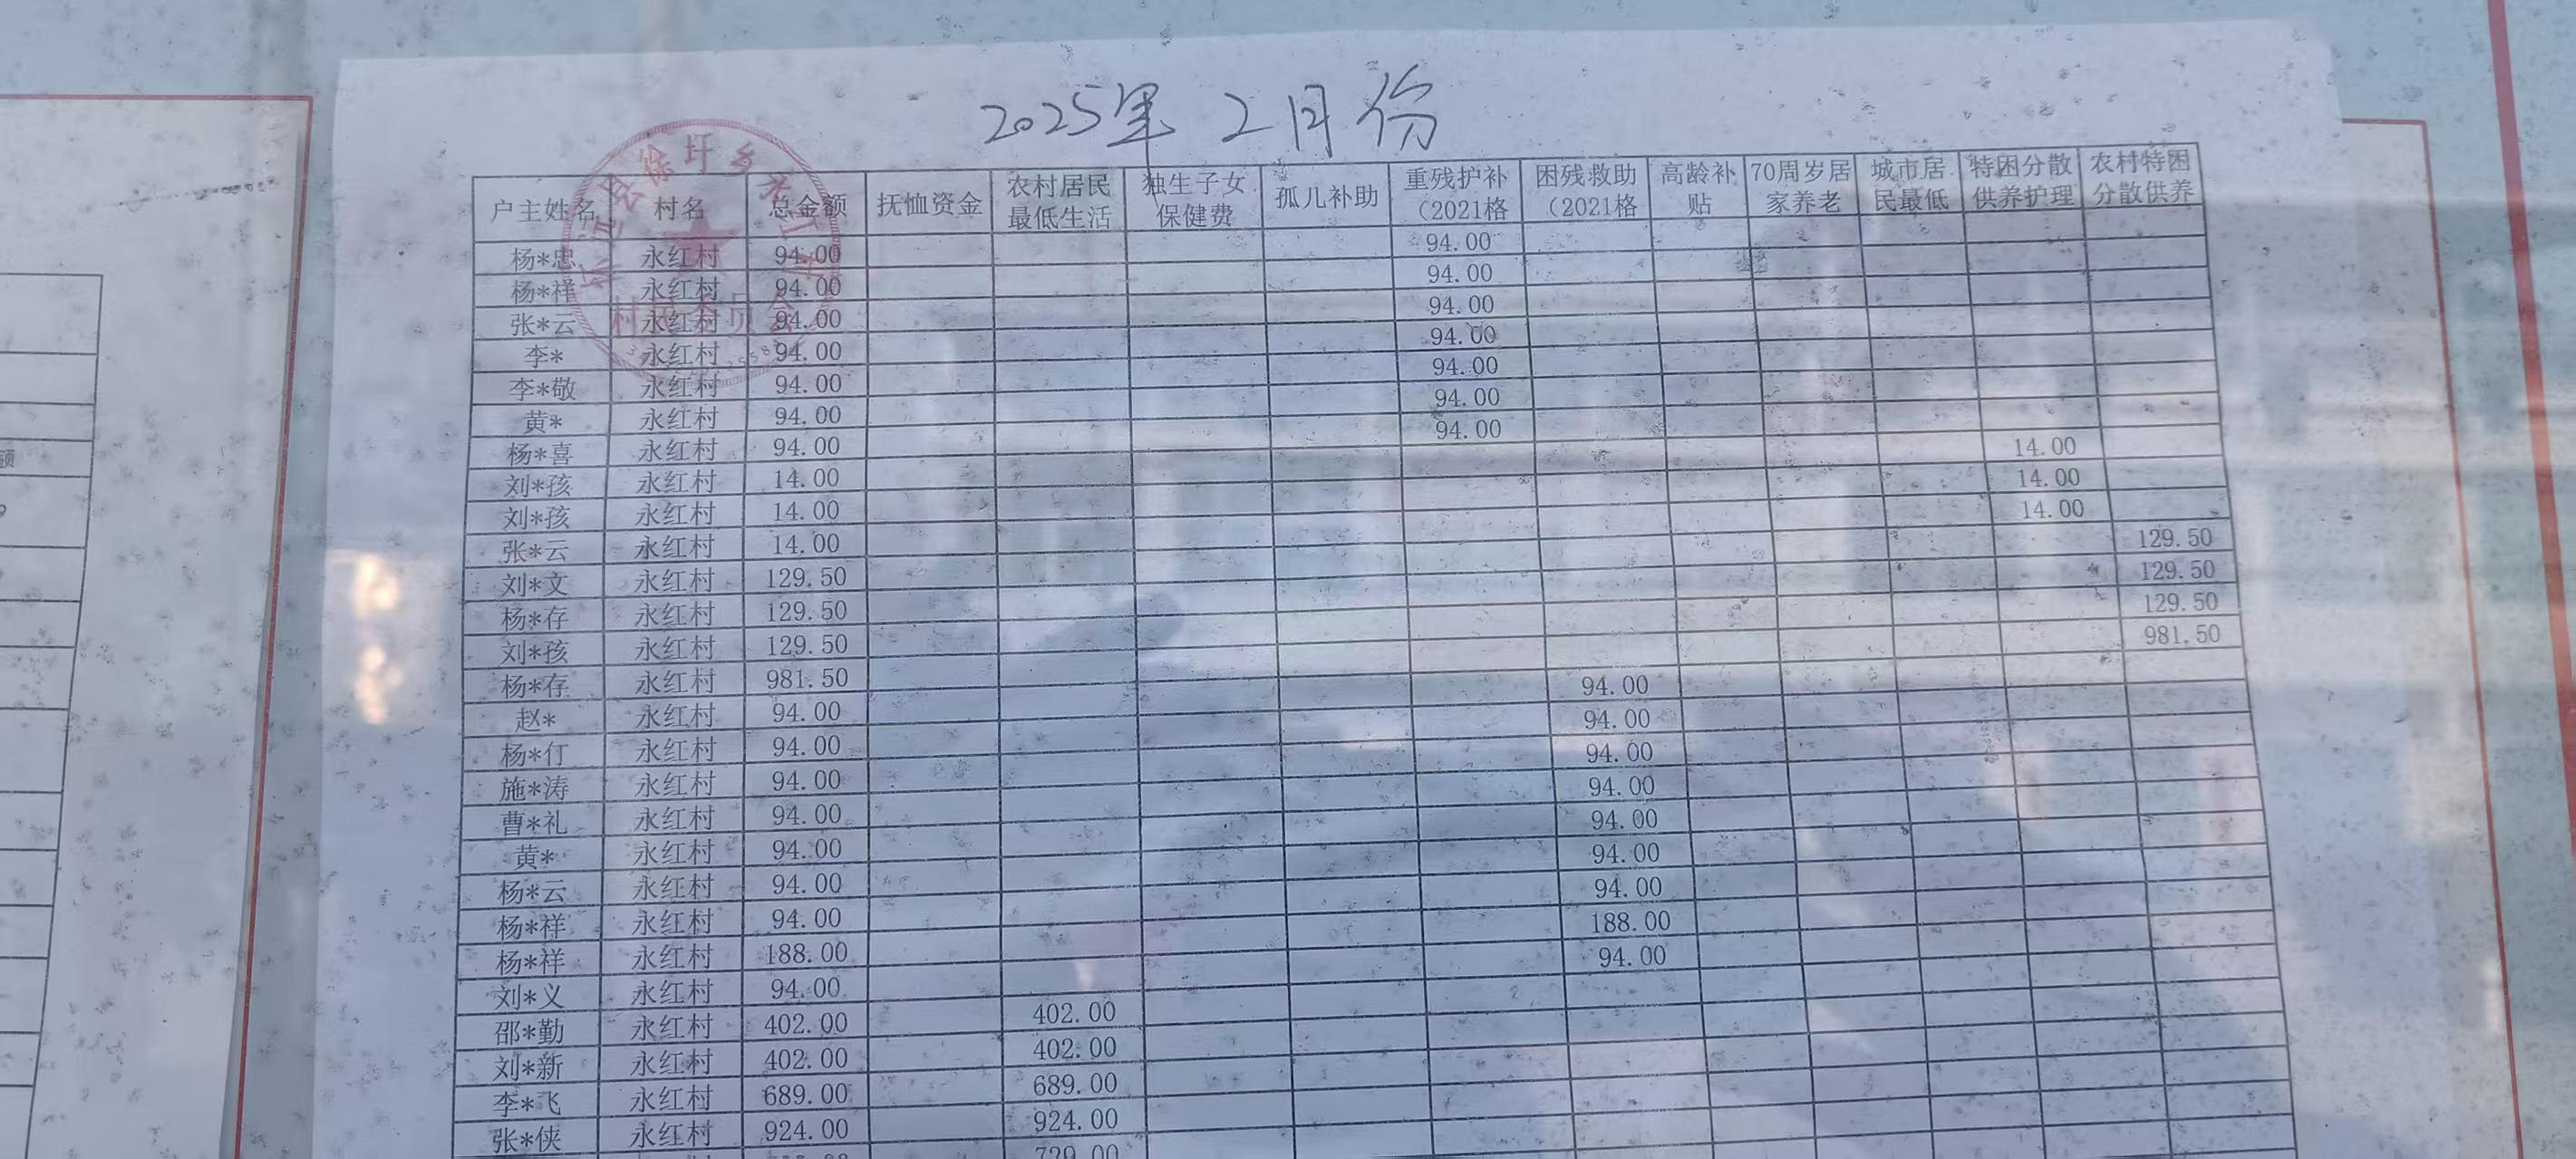 2025年2月份
户主姓名 村名 总金额 抚恤资金 农村居民最低生活 独生子女保健费 孤儿补助 重残护补（2021格 困残救助（2021格 高龄补贴 70周岁居家养老 城市居民最低 特困分散供养护理 农村特困分散供养
杨*忠 永红村 94.00 94.00
杨*祥 永红村 94.00 94.00
张*云 永红村 94.00 94.00
李* 永红村 94.00 94.00
李*敬 永红村 94.00 94.00
黄* 永红村 94.00 94.00
杨*喜 永红村 94.00 94.00
刘*孩 永红村 14.00 14.00
刘*孩 永红村 14.00 14.00
张*云 永红村 14.00 14.00
刘*文 永红村 129.50 129.50
杨*存 永红村 129.50 129.50
刘*孩 永红村 129.50 129.50
杨*存 永红村 981.50 981.50
赵* 永红村 94.00 94.00
杨*仃 永红村 94.00 94.00
施*涛 永红村 94.00 94.00
曹*礼 永红村 94.00 94.00
黄* 永红村 94.00 94.00
杨*云 永红村 94.00 94.00
杨*祥 永红村 94.00 94.00
杨*祥 永红村 188.00 188.00
刘*义 永红村 94.00 94.00
邵*勤 永红村 402.00 402.00
刘*新 永红村 402.00 402.00
李*飞 永红村 689.00 689.00
张*侠 永红村 924.00 924.00
额